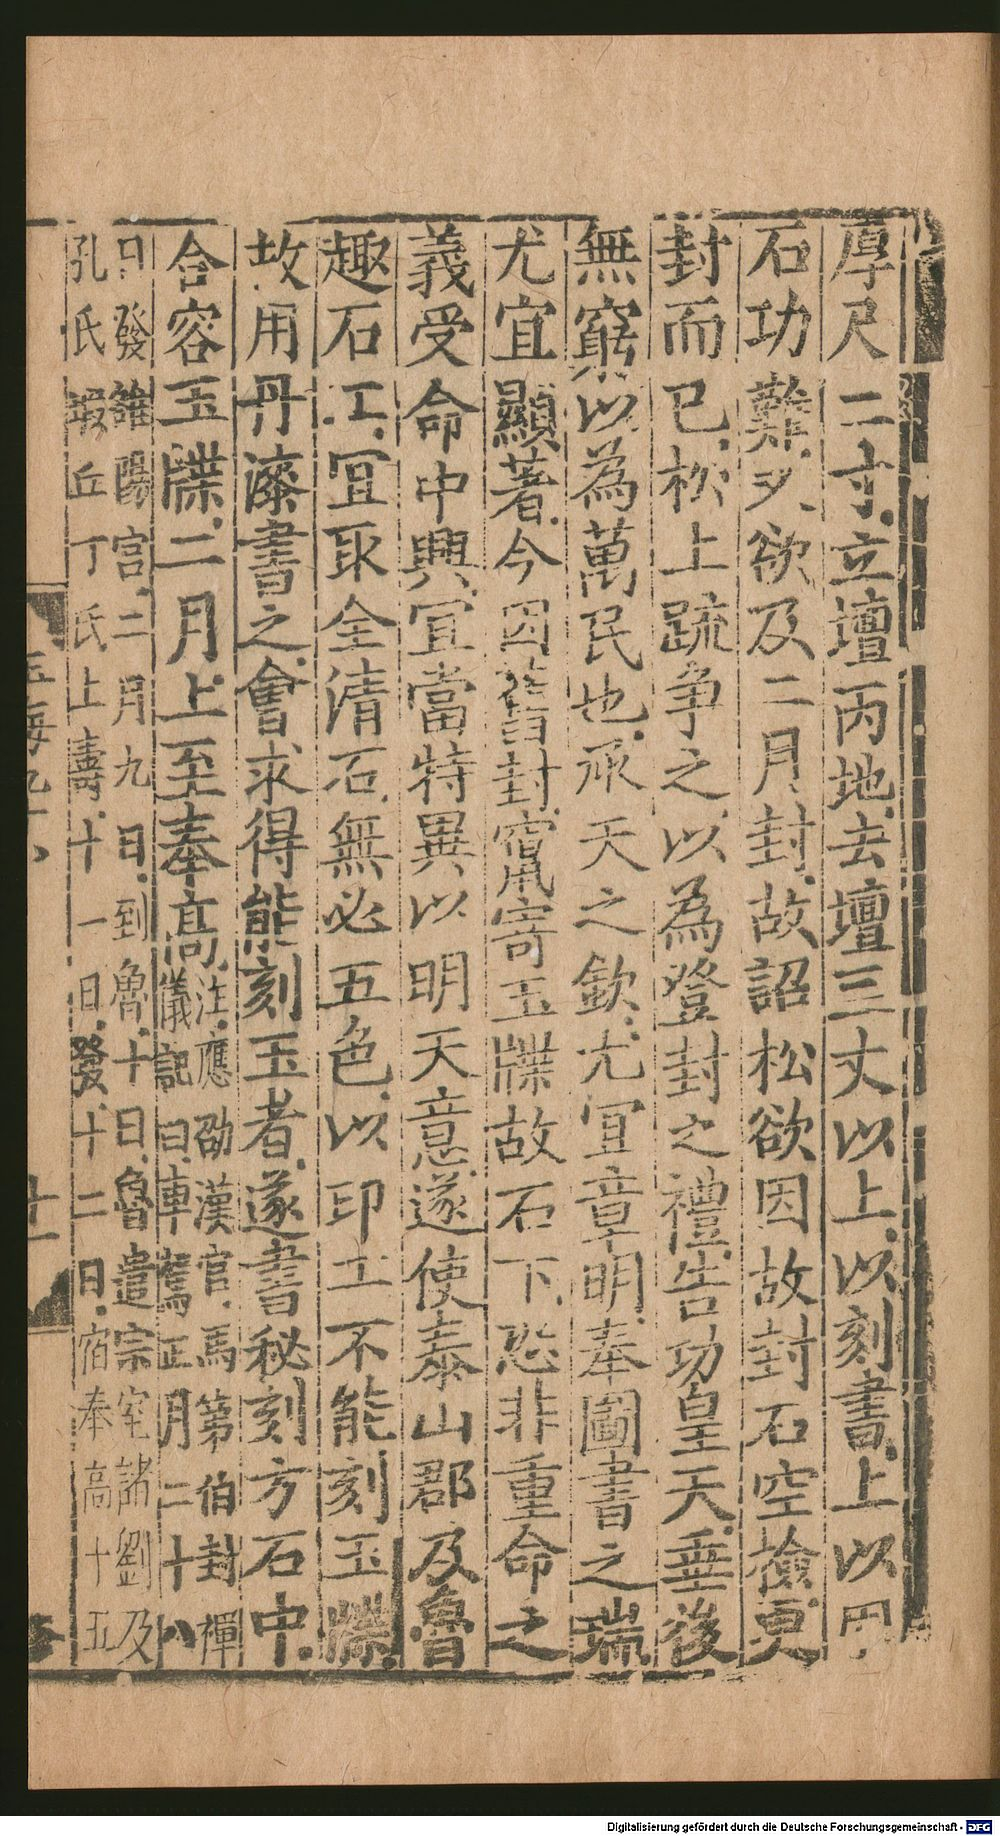 厚尺二寸立壇丙地去壇三丈以上以刻書上以用
石功難又欲及二月封故詔松欲因故封石空檢更
封而已松上疏争之以為登封之禮告功皇天垂後
無窮以為萬民也承天之欽尤冝章明奉圖書之瑞
尤宜顯著今因舊封竄寄玉牒故石下恐非重命之
義受命中興冝當特異以明天意遂使泰山郡及魯
趣石工冝取全清石無必五色以印工不能刻玉牒
故用丹漆書之㑹求得能刻玉者遂書秘刻方石中
合容玉牒二月上至奉高
注應劭漢官馬第伯封禪
儀記曰車駕正月二十八
日發雒陽宫二月九日到魯十日魯遣宗室諸劉及
孔氏瑕丘丁氏上壽十一日發十二日宿奉高十五
玉海九十八 十一
Digitalisierung gefördert durch die Deutsche Forschungsgemeinschaft - DFG